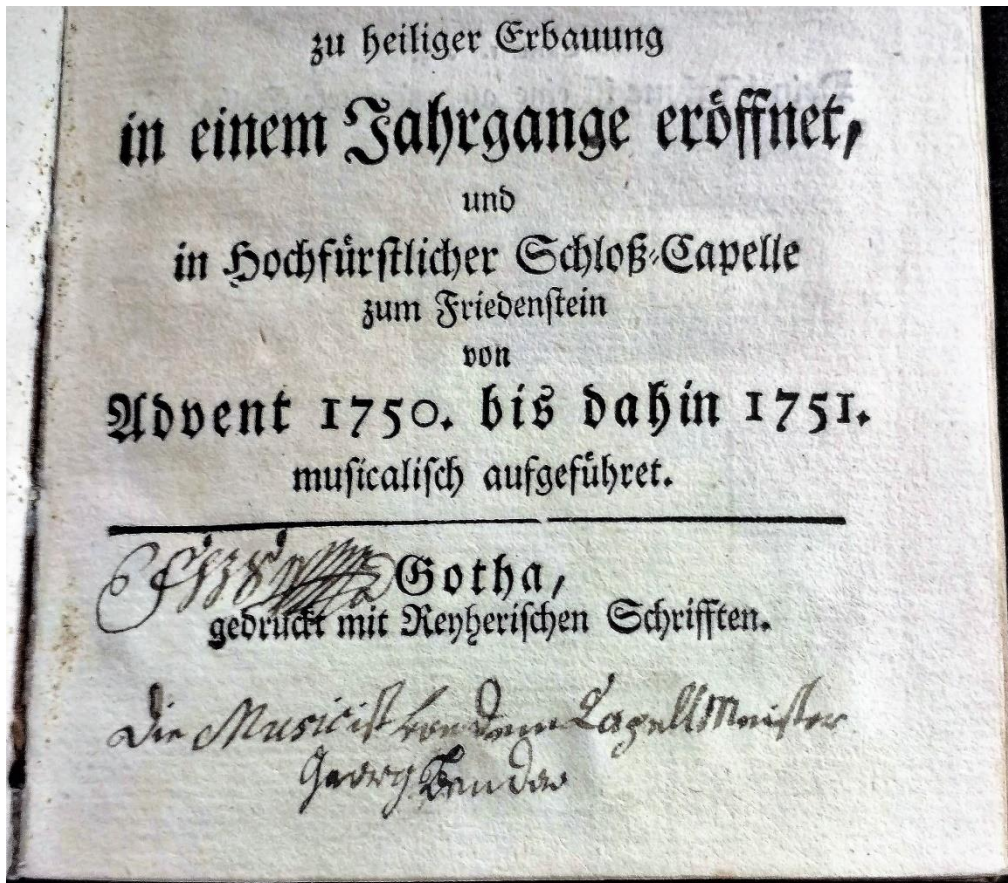 zu heiliger Erbauung
in einem Jahrgange eröffnet,
und
in Hochfürstlicher Schloß-Capelle
zum Friedenstein
von
Advent 1750. bis dahin 1751.
musicalisch aufgeführet.
Gotha,
gedruckt mit Reyherischen Schrifften.
Die Music ist von dem CapellMeister
Georg Benda